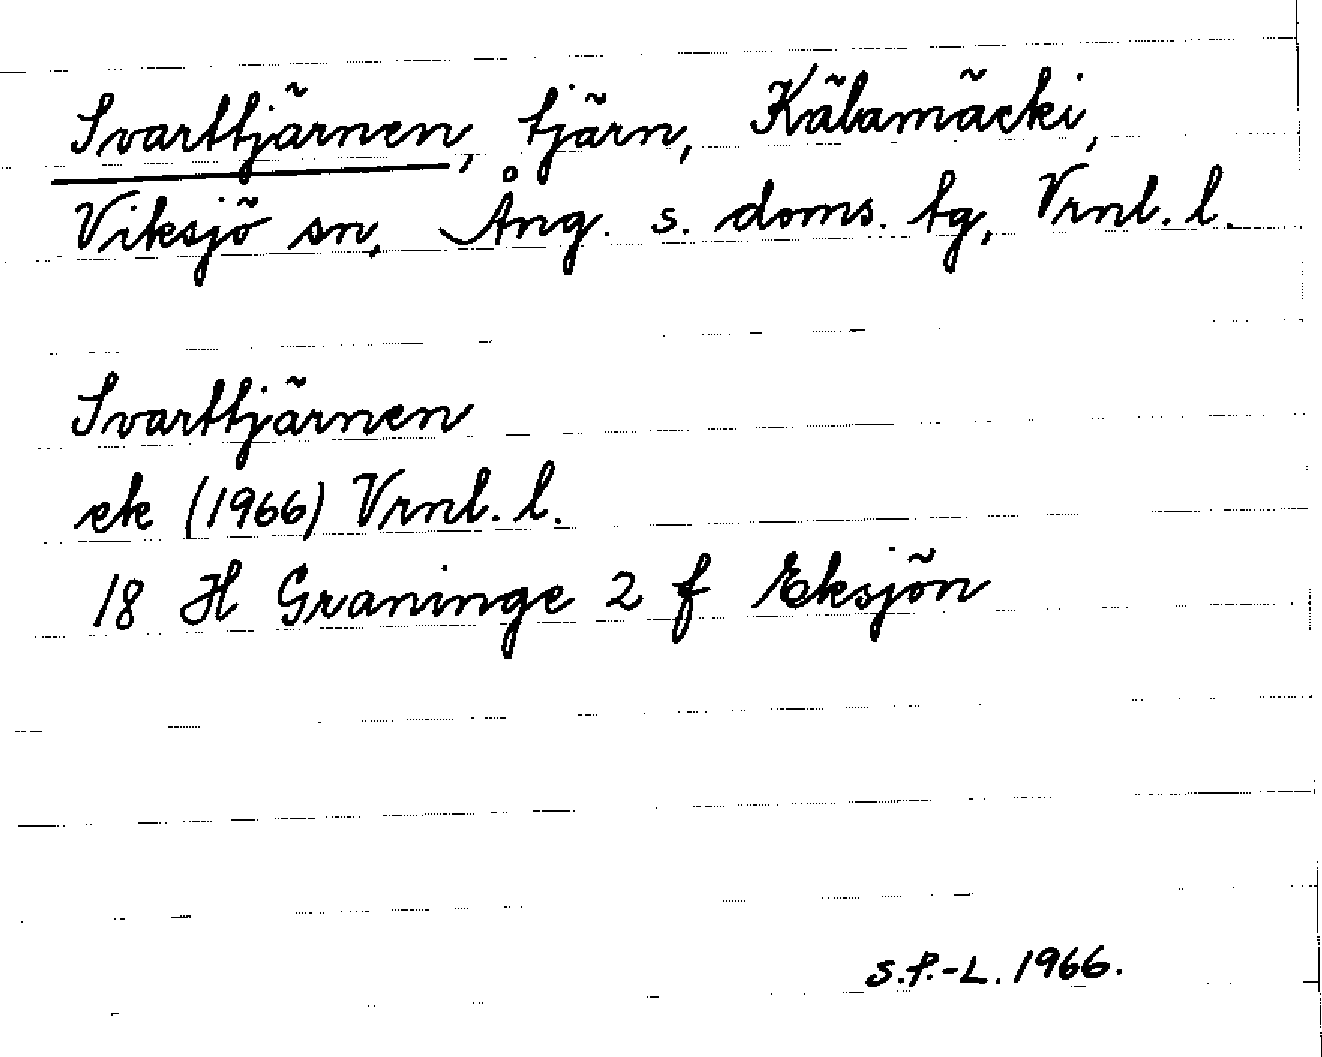 Svarttjärnen, tjärn, Källamäcki,
Viksjö sn, Ång. s. doms. tg, Vrnl. l.
Svarttjärnen
ek (1966) Vrnl. l.
18 H Graninge 2 f Eksjön
S.P.-L. 1966.